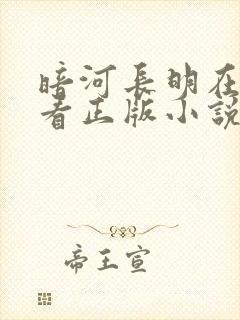 暗河長明在
看正版小說
帝王宣